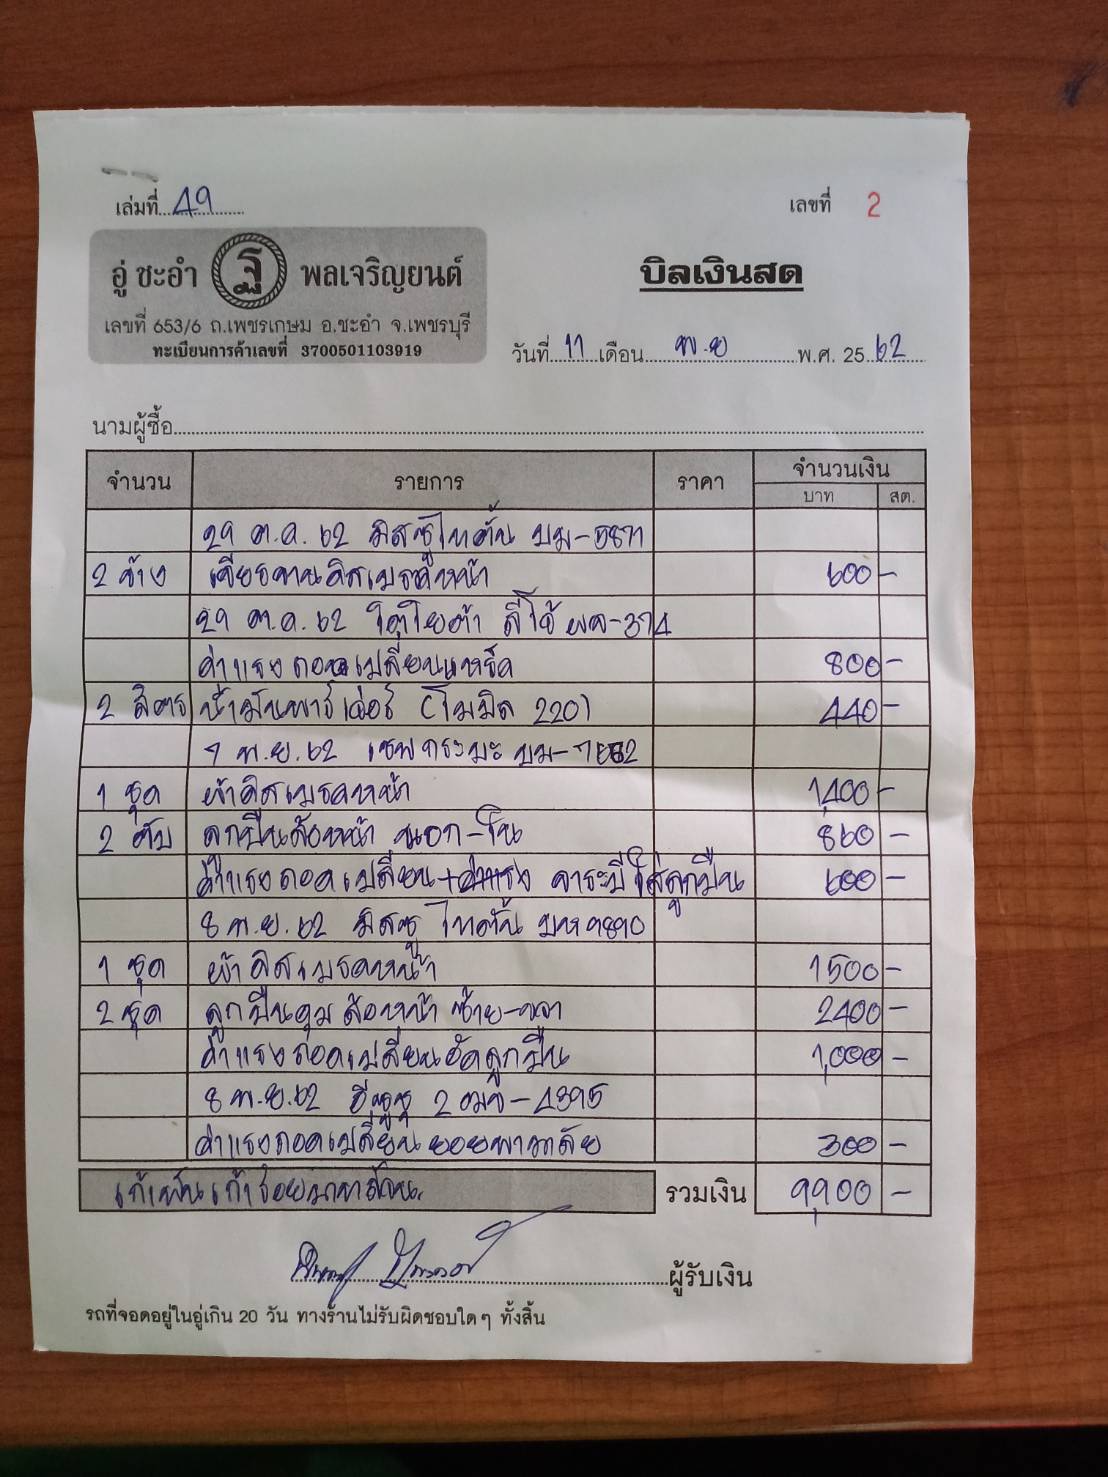 เล่มที่ 49 เลขที่ 2
อู่ ชะอำ ฐ พลเจริญยนต์
บิลเงินสด
เลขที่ 653/6 ถ.เพชรเกษม อ.ชะอำ จ.เพชรบุรี
ทะเบียนการค้าเลขที่ 3700501103919
วันที่ 11 เดือน พ.ย พ.ศ. 2562
นามผู้ซื้อ
จำนวน รายการ ราคา จำนวนเงิน
บาท สต.
29 ต.ค. 62 มิตซูไทตั้น บม-5871
2 ข้าง เจียรจานดิสเบรคหน้า 600 -
29 ต.ค. 62 โตโยต้า วีโก้ ผค-374
ค่าแรงถอดเปลี่ยนแหร็ค 800 -
2 ลิตร น้ำมันพาวเวอร์ (โมมิล 220) 440 -
7 พ.ย. 62 เชฟ กระบะ บม-
1 ชุด ผ้าดิสเบรคหน้า 1,400 -
2 ตับ ลูกปืนล้อหน้า นอก-ใน 860 -
ค่าแรงถอดเปลี่ยน + จาระบี ใส่ลูกปืน 600 -
8 พ.ย. 62 มิตซู ไทตั้น บห 9890
1 ชุด ผ้าดิสเบรคหน้า 1500 -
2 ชุด ลูกปืนดุมล้อหน้า ซ้าย-ขวา 2400 -
ค่าแรงถอดเปลี่ยนอัดลูกปืน 1,000 -
8 พ.ย. 62 อีซูซุ 2 - 4395
ค่าแรงถอดเปลี่ยนยอยเพลากลาง 300 -
เก้าพันเก้าร้อยบาทถ้วน. รวมเงิน 9,900 -
ผู้รับเงิน
รถที่จอดอยู่ในอู่เกิน 20 วัน ทางร้านไม่รับผิดชอบใดๆ ทั้งสิ้น